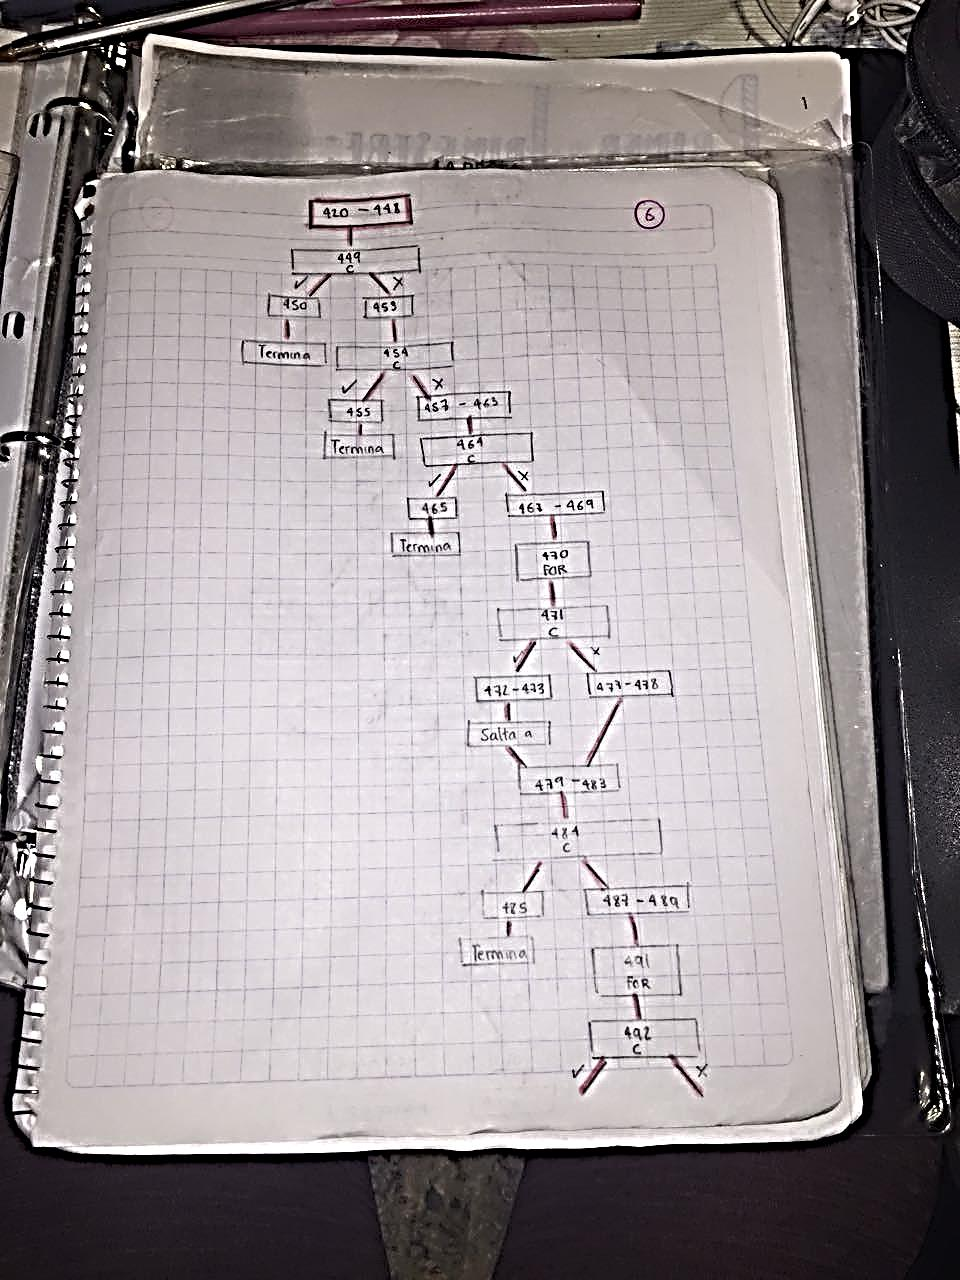 1
420 - 448
6
449
C
✓ x
450 453
Termina
454
C
✓ x
455 457 - 463
Termina
464
C
✓ x
465 467 - 469
Termina
470
FOR
471
C
✓ x
472-473 477-478
Salta a
479-483
484
C
485 487-489
Termina
491
FOR
492
C
✓ x